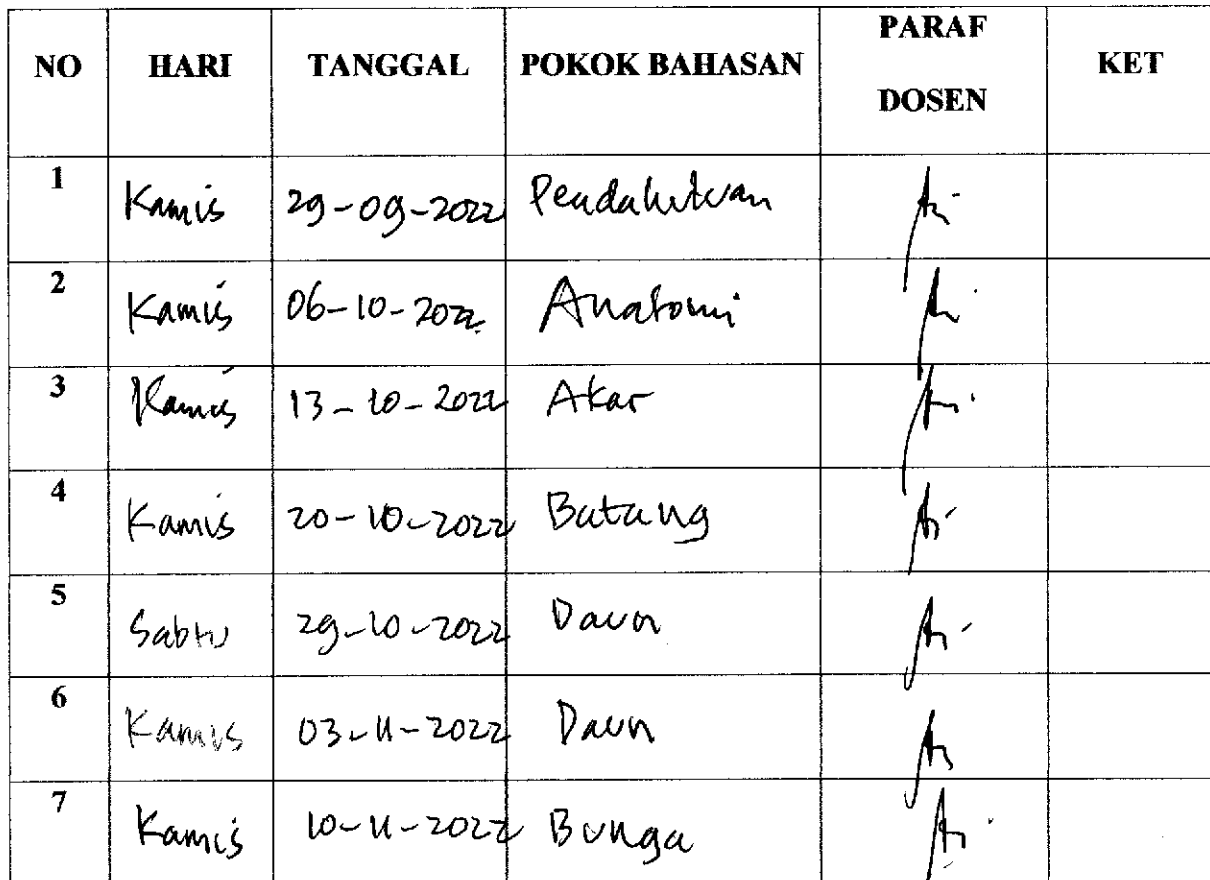 NO HARI TANGGAL POKOK BAHASAN PARAF DOSEN KET
1 Kamis 29-09-2022 Pendahuluan
2 Kamis 06-10-2022 Anatomi
3 Kamis 13-10-2022 Akar
4 Kamis 20-10-2022 Batang
5 Sabtu 29-10-2022 Daun
6 Kamis 03-11-2022 Daun
7 Kamis 10-11-2022 Bunga